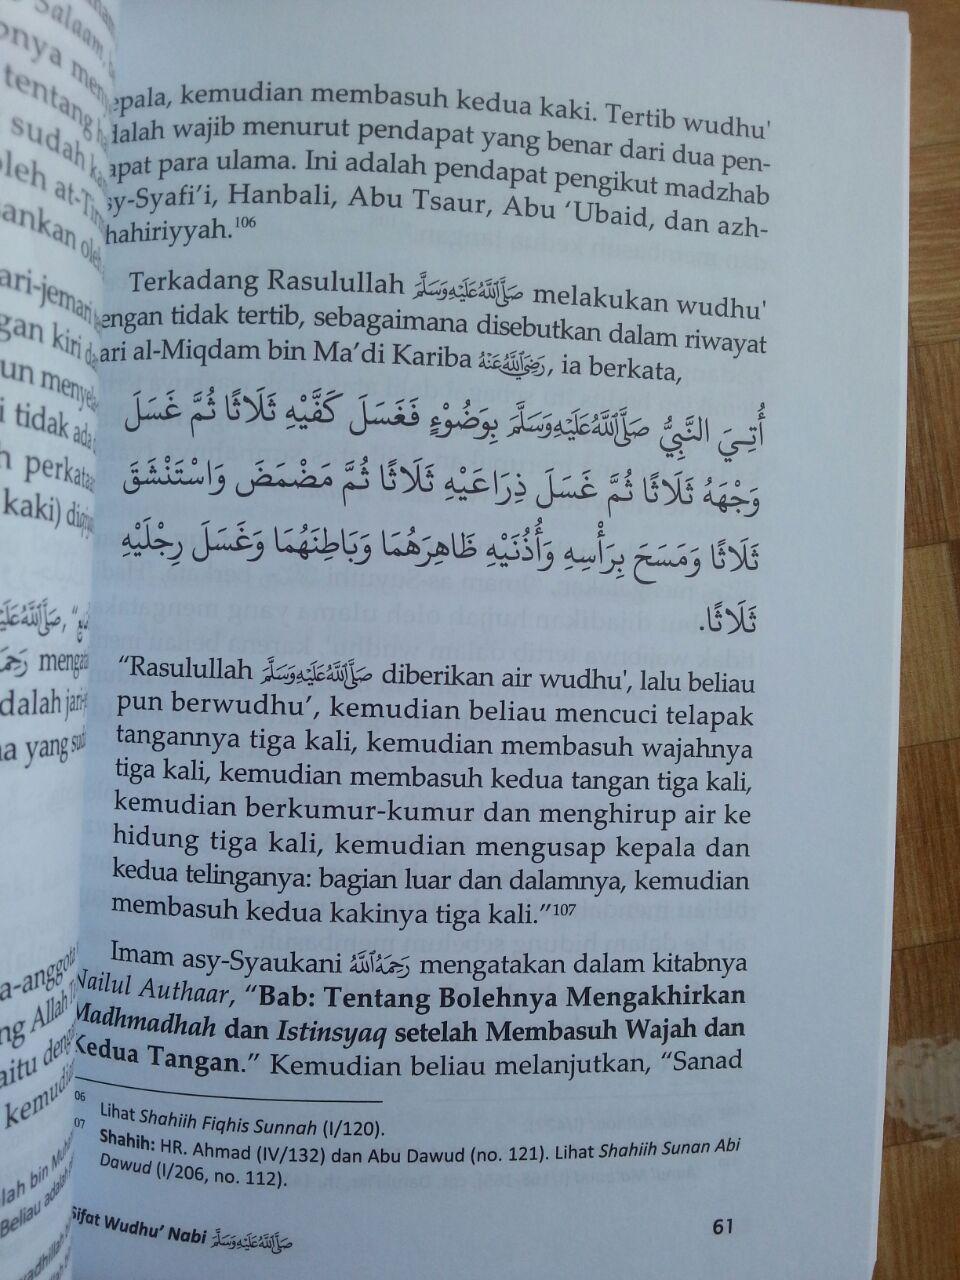 epala, kemudian membasuh kedua kaki. Tertib wudhu'
dalah wajib menurut pendapat yang benar dari dua pen-
apat para ulama. Ini adalah pendapat pengikut madzhab
sy-Syafi'i, Hanbali, Abu Tsaur, Abu 'Ubaid, dan azh-
hahiriyyah.106
Terkadang Rasulullah ﷺ melakukan wudhu'
engan tidak tertib, sebagaimana disebutkan dalam riwayat
ari al-Miqdam bin Ma'di Kariba رَضِيَ اللَّهُ عَنْهُ, ia berkata,
أُتِيَ النَّبِيُّ صَلَّى اللَّهُ عَلَيْهِ وَسَلَّمَ بِوَضُوْءٍ فَغَسَلَ كَفَّيْهِ ثَلَاثًا ثُمَّ غَسَلَ
وَجْهَهُ ثَلَاثًا ثُمَّ غَسَلَ ذِرَاعَيْهِ ثَلَاثًا ثُمَّ مَضْمَضَ وَاسْتَنْشَقَ
ثَلَاثًا وَمَسَحَ بِرَأْسِهِ وَأُذُنَيْهِ ظَاهِرَهُمَا وَبَاطِنَهُمَا وَغَسَلَ رِجْلَيْهِ
ثَلَاثًا.
“Rasulullah ﷺ diberikan air wudhu', lalu beliau
pun berwudhu’, kemudian beliau mencuci telapak
tangannya tiga kali, kemudian membasuh wajahnya
tiga kali, kemudian membasuh kedua tangan tiga kali,
kemudian berkumur-kumur dan menghirup air ke
hidung tiga kali, kemudian mengusap kepala dan
kedua telinganya: bagian luar dan dalamnya, kemudian
membasuh kedua kakinya tiga kali.”107
Imam asy-Syaukani رَحِمَهُ اللَّهُ mengatakan dalam kitabnya
Nailul Authaar, “Bab: Tentang Bolehnya Mengakhirkan
Madhmadhah dan Istinsyaq setelah Membasuh Wajah dan
Kedua Tangan.” Kemudian beliau melanjutkan, “Sanad
06 Lihat Shahiih Fiqhis Sunnah (I/120).
07 Shahih: HR. Ahmad (IV/132) dan Abu Dawud (no. 121). Lihat Shahiih Sunan Abi
Dawud (I/206, no. 112).
Sifat Wudhu’ Nabi ﷺ 61